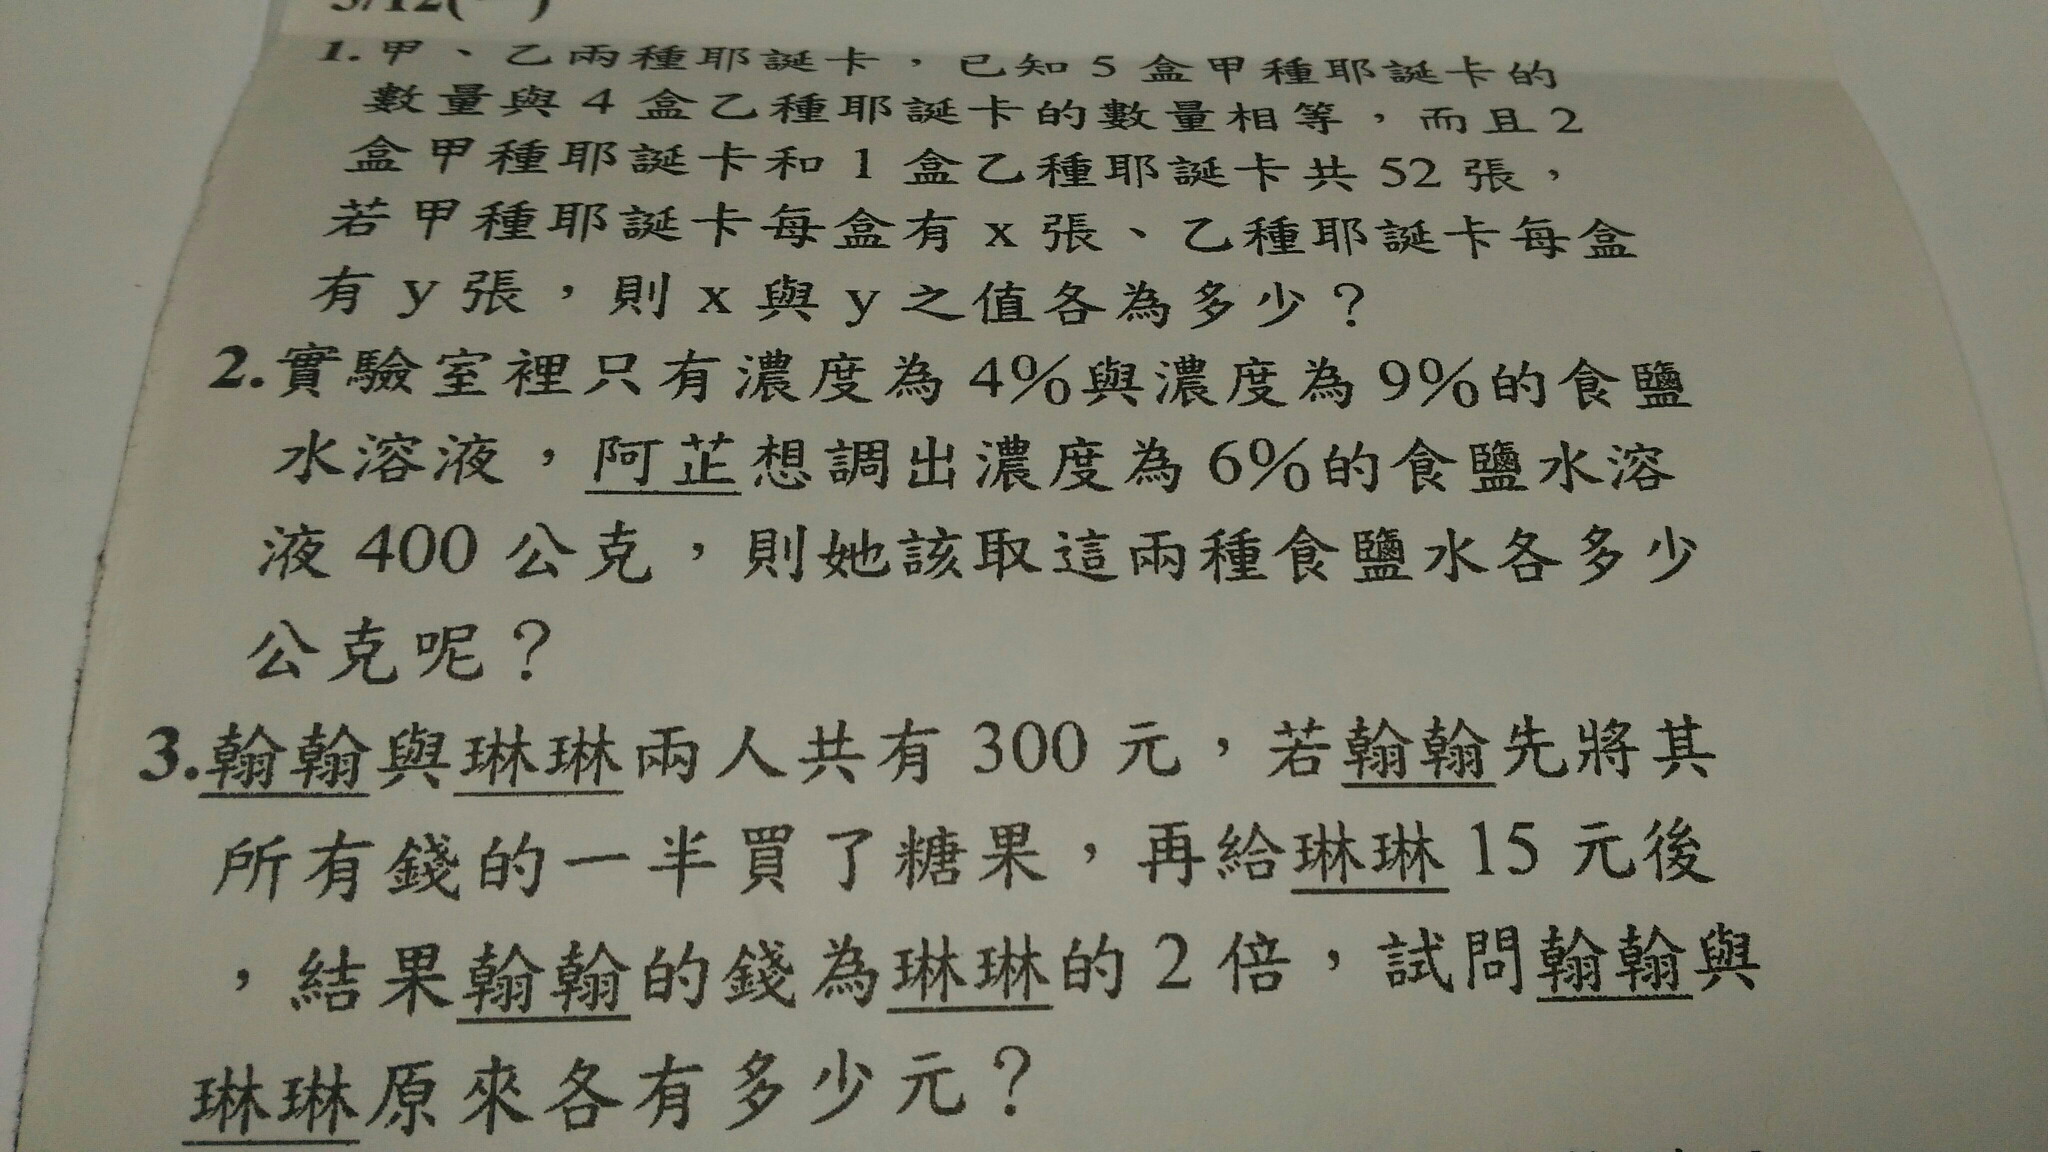 3/12(一)
1.甲、乙兩種耶誕卡，已知5盒甲種耶誕卡的
數量與4盒乙種耶誕卡的數量相等，而且2
盒甲種耶誕卡和1盒乙種耶誕卡共52張，
若甲種耶誕卡每盒有x張、乙種耶誕卡每盒
有y張，則x與y之值各為多少？
2.實驗室裡只有濃度為4%與濃度為9%的食鹽
水溶液，阿芷想調出濃度為6%的食鹽水溶
液400公克，則她該取這兩種食鹽水各多少
公克呢？
3.翰翰與琳琳兩人共有300元，若翰翰先將其
所有錢的一半買了糖果，再給琳琳15元後
，結果翰翰的錢為琳琳的2倍，試問翰翰與
琳琳原來各有多少元？